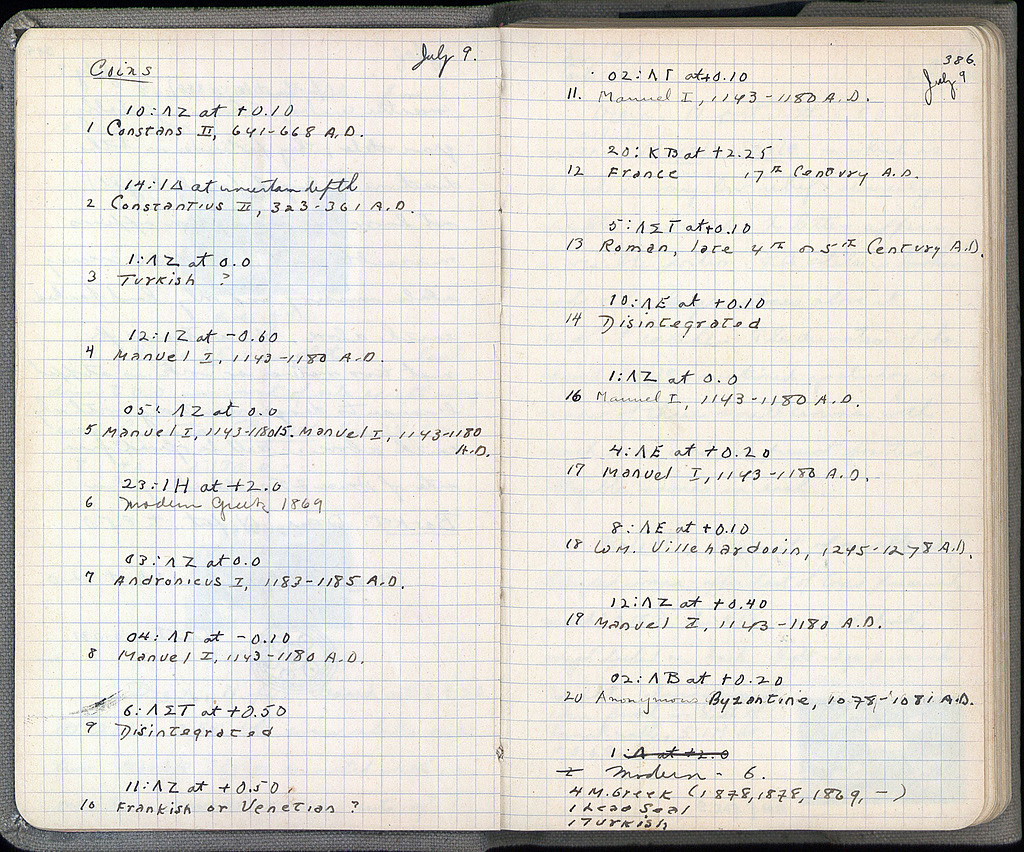 July 9.
Coins
10:ΛΖ at +0.10
1 Constans II, 641-668 A.D.
14:ΙΔ at uncertain depth
2 Constantius II, 323-361 A.D.
1:ΛΖ at 0.0
3 Turkish ?
12:ΙΖ at -0.60
4 Manuel I, 1143-1180 A.D.
05: ΛΖ at 0.0
5 Manuel I, 1143-1180 15. Manuel I, 1143-1180
A.D.
23:ΙΗ at +2.0
6 Modern Greek 1869
03:ΛΖ at 0.0
7 Andronicus I, 1183-1185 A.D.
04: ΛΓ at -0.10
8 Manuel I, 1143-1180 A.D.
6:ΛΣΤ at +0.50
9 Disintegrated
11:ΛΖ at +0.50
10 Frankish or Venetian ?
386.
July 9
02:ΛΓ at +0.10
11. Manuel I, 1143-1180 A.D.
20:ΚΒ at +2.25
12 France 17th Century A.D.
5:ΛΣΤ at +0.10
13 Roman, late 4th or 5th Century A.D.
10:ΛΕ at +0.10
14 Disintegrated
1:ΛΖ at 0.0
16 Manuel I, 1143-1180 A.D.
4:ΛΕ at +0.20
17 Manuel I, 1143-1180 A.D.
8:ΛΕ at +0.10
18 Wm. Villehardouin, 1245-1278 A.D.
12:ΛΖ at +0.40
19 Manuel I, 1143-1180 A.D.
02:ΛΒ at +0.20
20 Anonymous Byzantine, 1078-1081 A.D.
1:Λ at +2.0
2 Modern - 6.
4 M.Greek (1878,1878, 1869, -)
1 Lead Seal
1 Turkish